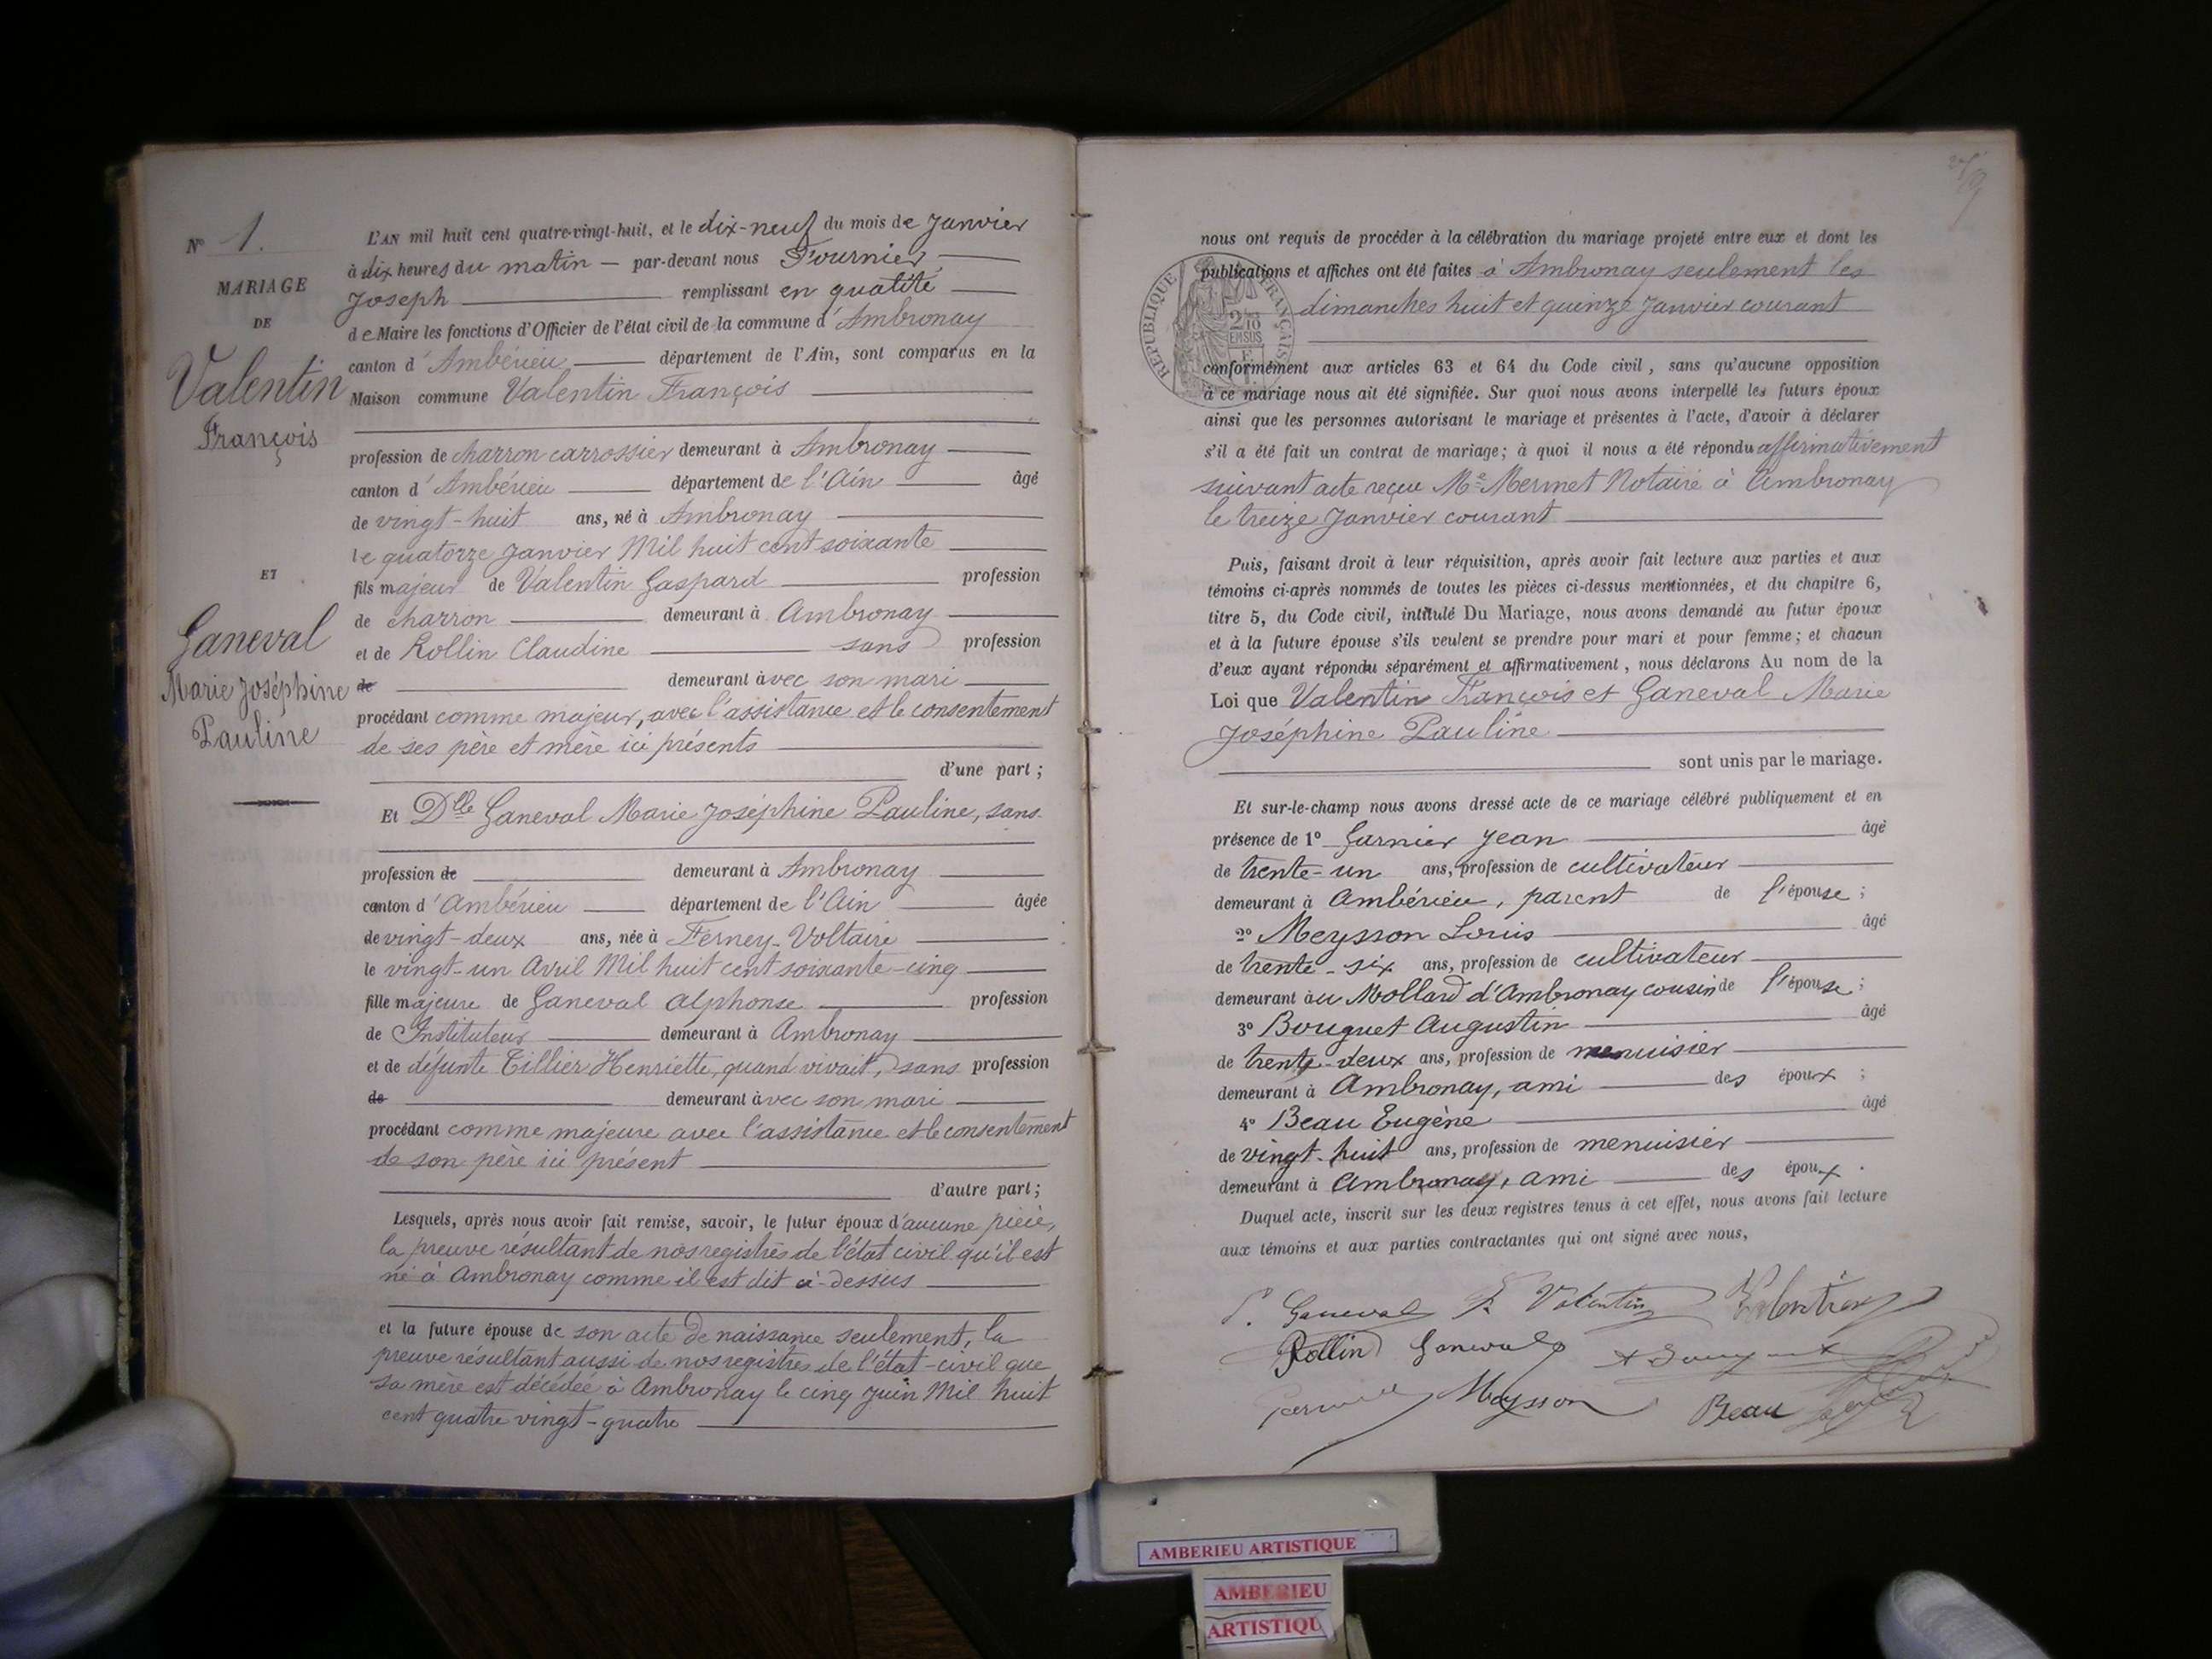 N° 1.
MARIAGE
DE
Valentin
François
ET
Ganeval
Marie Joséphine
Pauline
L'AN mil huit cent quatre-vingt-huit, et le dix-neuf du mois de Janvier
à dix heures du matin — par-devant nous Fournier
Joseph remplissant en qualité
de Maire les fonctions d'Officier de l'état civil de la commune d'Ambronay
canton d'Ambérieu département de l'Ain, sont comparus en la
Maison commune Valentin François
profession de charron carrossier demeurant à Ambronay
canton d'Ambérieu département de l'Ain âgé
de vingt-huit ans, né à Ambronay
le quatorze Janvier Mil huit cent soixante
fils majeur de Valentin Gaspard profession
de charron demeurant à Ambronay
et de Rollin Claudine sans profession
de demeurant avec son mari
procédant comme majeur, avec l'assistance et le consentement
de ses père et mère ici présents
d'une part ;
Et Dlle Ganeval Marie Joséphine Pauline, sans
profession de demeurant à Ambronay
canton d'Ambérieu département de l'Ain âgée
de vingt-deux ans, née à Ferney-Voltaire
le vingt-un Avril Mil huit cent soixante-cinq
fille majeure de Ganeval Alphonse profession
de Instituteur demeurant à Ambronay
et de défunte Tillier Henriette, quand vivait, sans profession
de demeurant avec son mari
procédant comme majeure avec l'assistance et le consentement
de son père ici présent
d'autre part ;
Lesquels, après nous avoir fait remise, savoir, le futur époux d'aucune pièce,
la preuve résultant de nos registres de l'état civil qu'il est
né à Ambronay comme il est dit ci-dessus
et la future épouse de son acte de naissance seulement, la
preuve résultant aussi de nos registres de l'état-civil que
sa mère est décédée à Ambronay le cinq Juin Mil huit
cent quatre vingt-quatre
nous ont requis de procéder à la célébration du mariage projeté entre eux et dont les
publications et affiches ont été faites à Ambronay seulement les
dimanches huit et quinze Janvier courant
RÉPUBLIQUE FRANÇAISE
2/10
EN SUS
conformément aux articles 63 et 64 du Code civil, sans qu'aucune opposition
à ce mariage nous ait été signifiée. Sur quoi nous avons interpellé les futurs époux
ainsi que les personnes autorisant le mariage et présentes à l'acte, d'avoir à déclarer
s'il a été fait un contrat de mariage ; à quoi il nous a été répondu affirmativement
suivant acte reçu Me Mermet Notaire à Ambronay
le treize Janvier courant
Puis, faisant droit à leur réquisition, après avoir fait lecture aux parties et aux
témoins ci-après nommés de toutes les pièces ci-dessus mentionnées, et du chapitre 6,
titre 5, du Code civil, intitulé Du Mariage, nous avons demandé au futur époux
et à la future épouse s'ils veulent se prendre pour mari et pour femme ; et chacun
d'eux ayant répondu séparément et affirmativement, nous déclarons Au nom de la
Loi que Valentin François et Ganeval Marie
Joséphine Pauline
sont unis par le mariage.
Et sur-le-champ nous avons dressé acte de ce mariage célébré publiquement et en
présence de 1° Garnier Jean âgé
de trente-un ans, profession de cultivateur
demeurant à Ambérieu, parent de l'épouse ;
2° Meysson Louis âgé
de trente-six ans, profession de cultivateur
demeurant au Mollard d'Ambronay cousin de l'épouse ;
3° Bouguet Augustin âgé
de trente-deux ans, profession de menuisier
demeurant à Ambronay, ami des époux ;
4° Beau Eugène âgé
de vingt-huit ans, profession de menuisier
demeurant à Ambronay, ami des époux.
Duquel acte, inscrit sur les deux registres tenus à cet effet, nous avons fait lecture
aux témoins et aux parties contractantes qui ont signé avec nous,
P. Ganeval F. Valentin Valentin
Rollin Ganeval
Meysson Beau
AMBERIEU ARTISTIQUE
AMBERIEU
ARTISTIQU